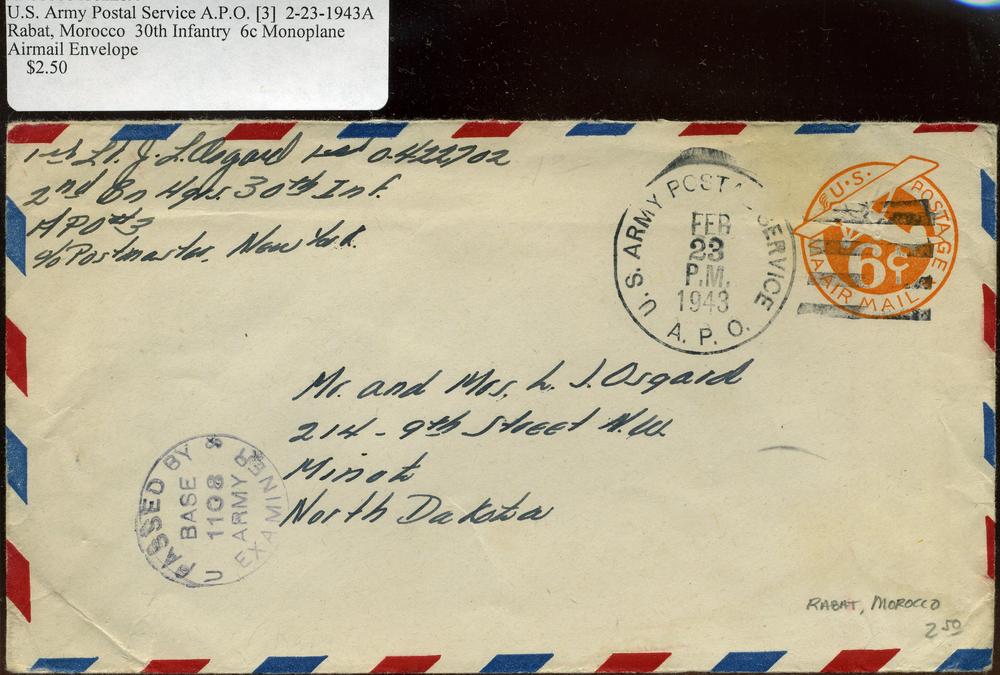 U.S. Army Postal Service A.P.O. [3] 2-23-1943A
Rabat, Morocco 30th Infantry 6c Monoplane
Airmail Envelope
$2.50
1st Lt. J L Osgard 0-422702
2nd Bn Hqrs. 30th Inf.
APO #3
c/o Postmaster, New York.
U.S. ARMY POSTAL SERVICE
FEB
23
P.M.
1943
A. P. O.
U.S. POSTAGE
6¢
VIA AIR MAIL
Mr. and Mrs. L. J. Osgard
214 - 9th Street N.W.
Minot
North Dakota
PASSED BY
BASE
1108
U S ARMY
EXAMINER
RABAT, MOROCCO
2 50